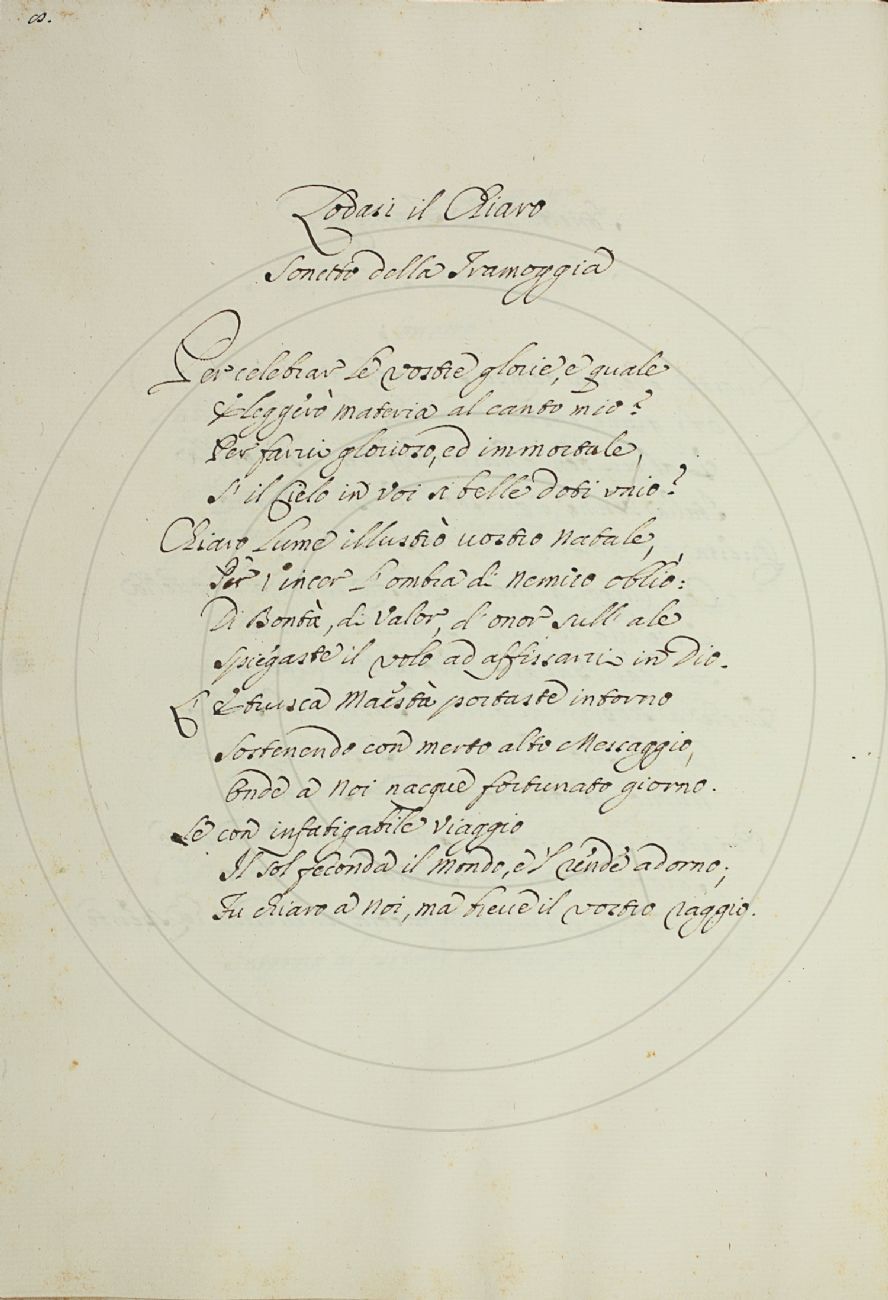 8.
Lodasi il Chiaro
Sonetto della Tramoggia
Per celebrar le vostre glorie, e quale
Eleggerò materia al canto mio?
Per farvi glorioso, ed immortale,
S' il Cielo in voi si belle doti unio?
Chiaro lume illustrò vostro natale,
Per vincer l'ombra di nemico oblio:
Di Bontà, di Valor, d'onor sull' ale
spiegaste il volo ad affissarvi in Dio.
E' Etrusca Maestà portaste intorno
sostenendo con merto alto Messaggio,
onde a Noi nacque fortunato giorno.
Se con infatigabile viaggio
Il sol feconda il mondo, e 'l rende adorno;
Fu chiaro a noi, ma breve il vostro raggio.